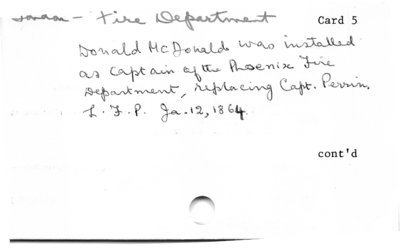 London - Fire Department Card 5
Donald McDonald was installed
as Captain of the Phoenix Fire
Department, replacing Capt. Perrin.
L. F. P. Ja. 12, 1864.
cont'd